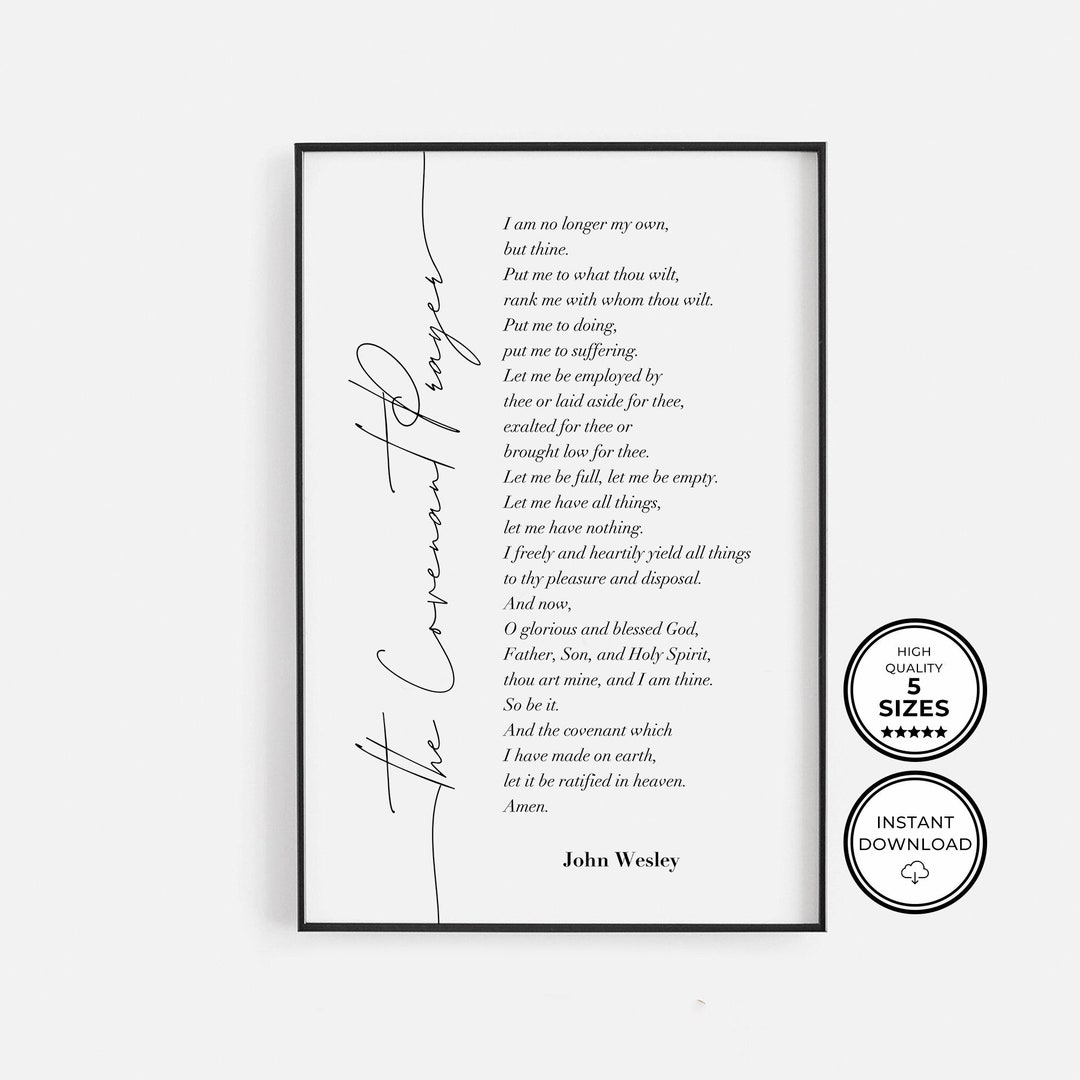 The Covenant Prayer
I am no longer my own,
but thine.
Put me to what thou wilt,
rank me with whom thou wilt.
Put me to doing,
put me to suffering.
Let me be employed by
thee or laid aside for thee,
exalted for thee or
brought low for thee.
Let me be full, let me be empty.
Let me have all things,
let me have nothing.
I freely and heartily yield all things
to thy pleasure and disposal.
And now,
O glorious and blessed God,
Father, Son, and Holy Spirit,
thou art mine, and I am thine.
So be it.
And the covenant which
I have made on earth,
let it be ratified in heaven.
Amen.
John Wesley
HIGH
QUALITY
5
SIZES
INSTANT
DOWNLOAD